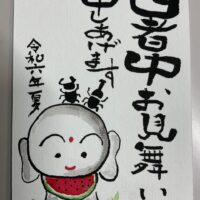 暑中お見舞い
申しあげます
令和六年 夏